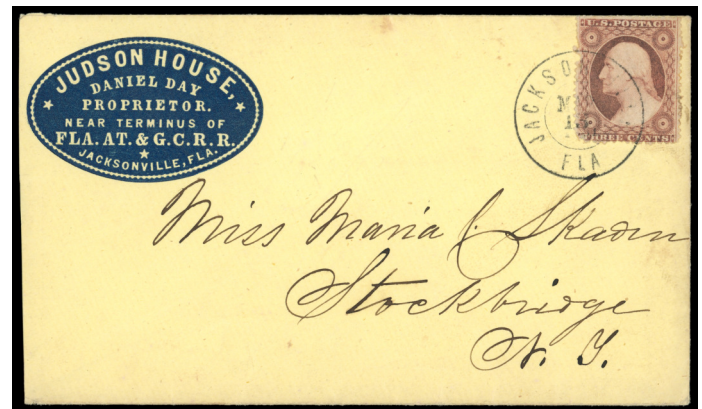 JUDSON HOUSE,
DANIEL DAY
PROPRIETOR.
NEAR TERMINUS OF
FLA. AT. & G.C.R.R.
JACKSONVILLE, FLA.
U.S. POSTAGE
THREE CENTS
FLA
Miss Maria
Stockbridge
N. Y.